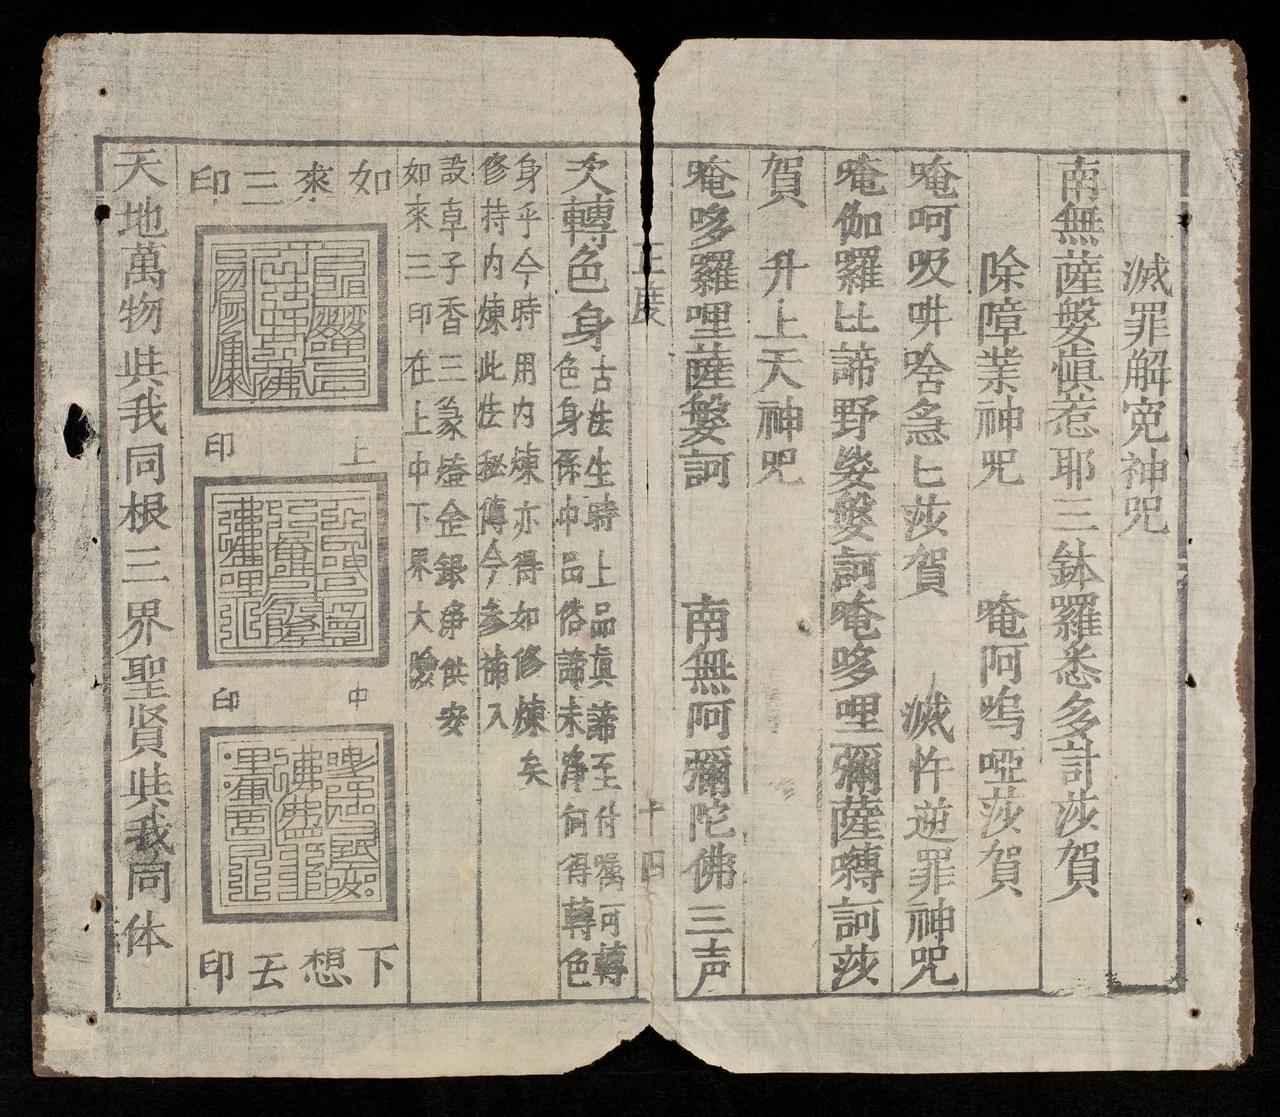 滅罪解冤神咒
南無薩嚩慎惹耶三鉢羅悉多計莎賀
除障業神咒 唵阿嗚啞莎賀
唵呵吸吽啥急匕莎賀 滅忤逆罪神咒
唵伽羅比諦野娑嚩訶唵哆哩彌薩囀訶莎
賀 升上天神咒
唵哆羅哩薩嚩訶 南無阿彌陀佛三声
十四
次轉色身
古法生時上品眞諦至付囑可轉
色身係中品俗諦未淨何得轉色
身乎今時用内煉亦得如修煉矣
修持内煉此法秘傳今参補入
設草子香三
如來三印在上中下界大
如來三印
上印
中印
下想云印
天地萬物共我同根三界聖賢共我同体